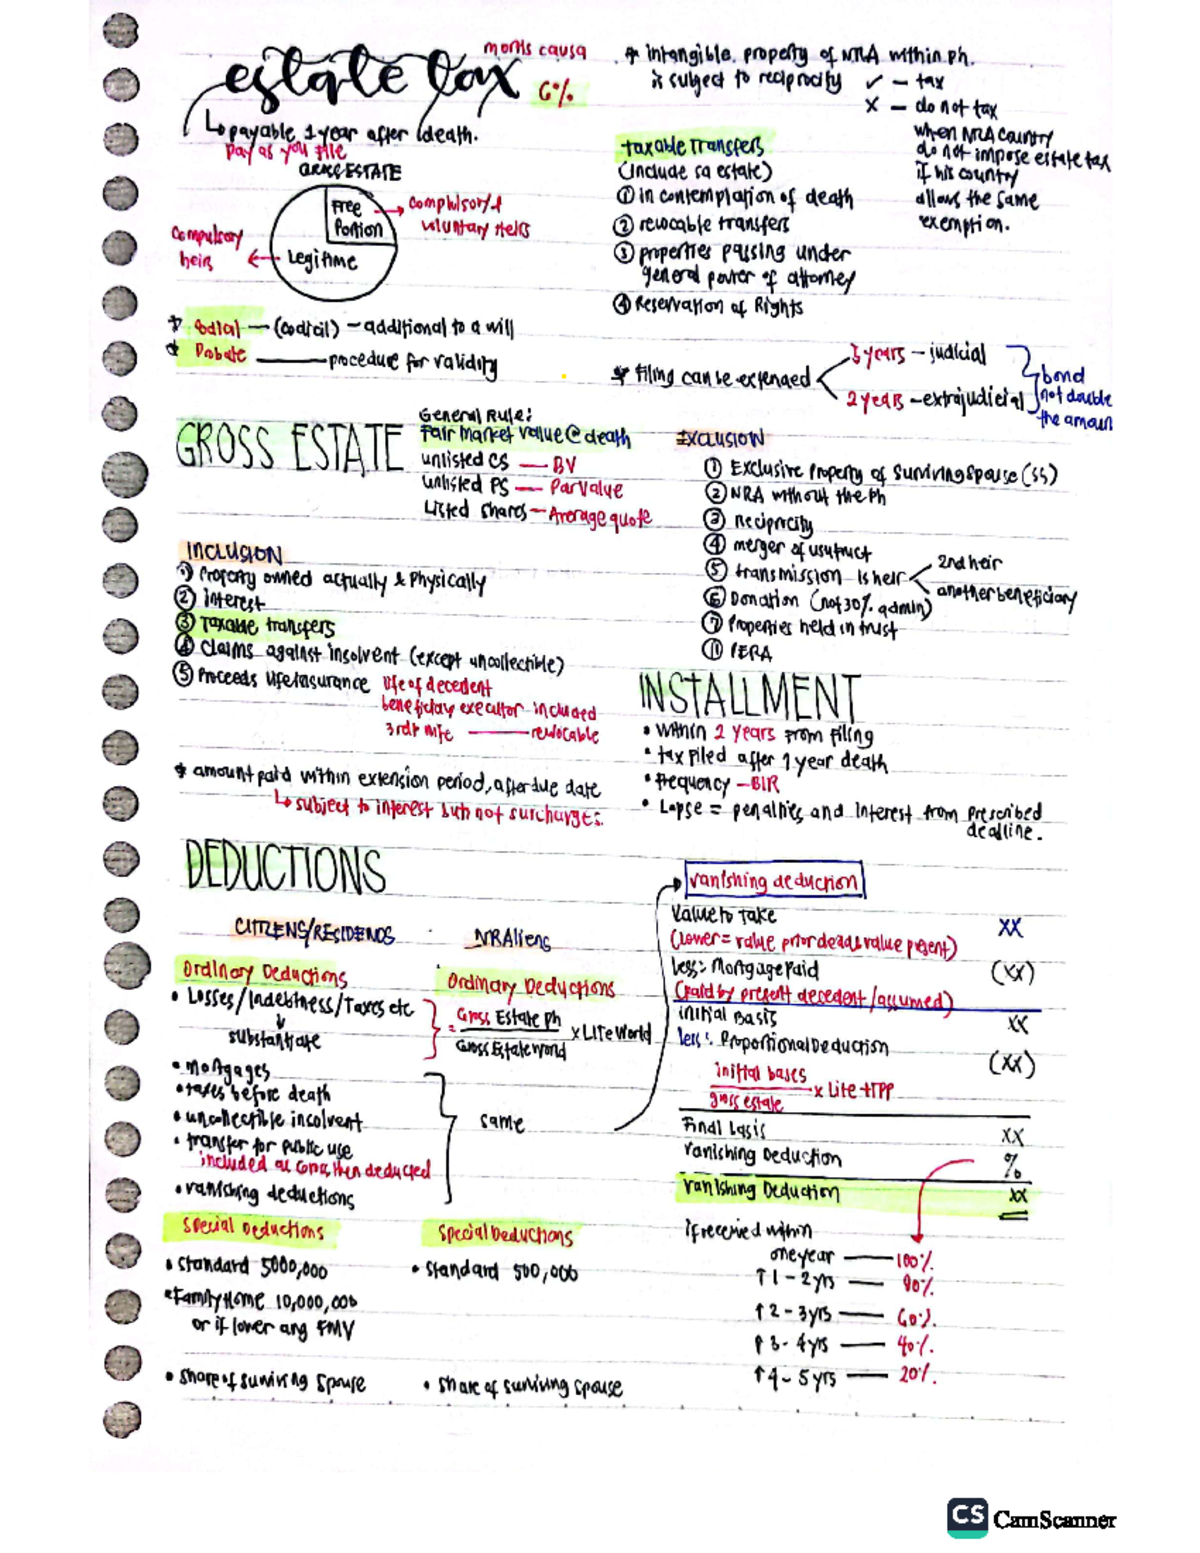 estate tax
mortis causa
6%
↳ payable 1 year after death.
pay as you file
GROSS ESTATE
Free Portion
→ compulsory &
voluntary heirs
compulsory
heirs ←
Legitime
* Codicial — (codicil) - additional to a will
* Probate ——— procedure for validity
* intangible property of NRA within ph.
is subject to reciprocity ✓ - tax
X - do not tax
when NRA country
do not impose estate tax
if his country
allows the same
exemption.
taxable Transfers
(include sa estate)
① in contemplation of death
② revocable transfers
③ properties passing under
general power of attorney
④ Reservation of Rights
* Filing can be extended
5 years - judicial
2 years - extrajudicial
bond
not double
the amoun
GROSS ESTATE
General Rule:
Fair market value @ death
unlisted CS — BV
unlisted PS — Par value
Listed shares - Average quote
INCLUSION
① Property owned actually & Physically
② Interest
③ Taxable transfers
④ Claims against insolvent (except uncollectible)
⑤ Proceeds life Insurance life of decedent
beneficiary executor included
——— revocable
* amount paid within extension period, after due date
↳ subject to interest but not surcharges.
EXCLUSION
① Exclusive Property of surviving spouse (SS)
② NRA without the Ph
③ Reciprocity
④ merger of usufruct
⑤ transmission 1st heir
2nd heir
another beneficiary
⑥ Donation (not 30% admin)
⑦ Properties held in trust
⑪ PERA
INSTALLMENT
• Within 2 years from filing
• tax filed after 1 year death
• Frequency - BIR
• Lapse = penalties and interest from prescribed
deadline.
DEDUCTIONS
CITIZENS/RESIDENTS
Ordinary Deductions
• Losses/Indebtness/Taxes etc
↓
substantiate
• Mortgages
• taxes before death
• uncollectible insolvent
• transfer for public use
included as, then deducted
• vanishing deductions
Special Deductions
• Standard 5000,000
• Family Home 10,000,000
or if lower ang FMV
• share of surviving spouse
NRAliens
Ordinary Deductions
= Gross Estate Ph
Gross Estate World
x Lite World
same
Special Deductions
• Standard 500,000
• share of surviving spouse
vanishing deduction
Value to Take XX
(lower = value prior dead & value present)
less: Mortgage Paid (XX)
(paid by present decedent / assumed)
initial Basis XX
less: Proportional Deduction (XX)
initial bases
gross estate
x Lite + TPP
Final basis XX
Vanishing Deduction %
Vanishing Deduction XX
if received within
one year — 100%
↑ 1 - 2 yrs — 80%
↑ 2 - 3 yrs — 60%.
↑ 3 - 4 yrs — 40%.
↑ 4 - 5 yrs — 20%.
CS CamScanner